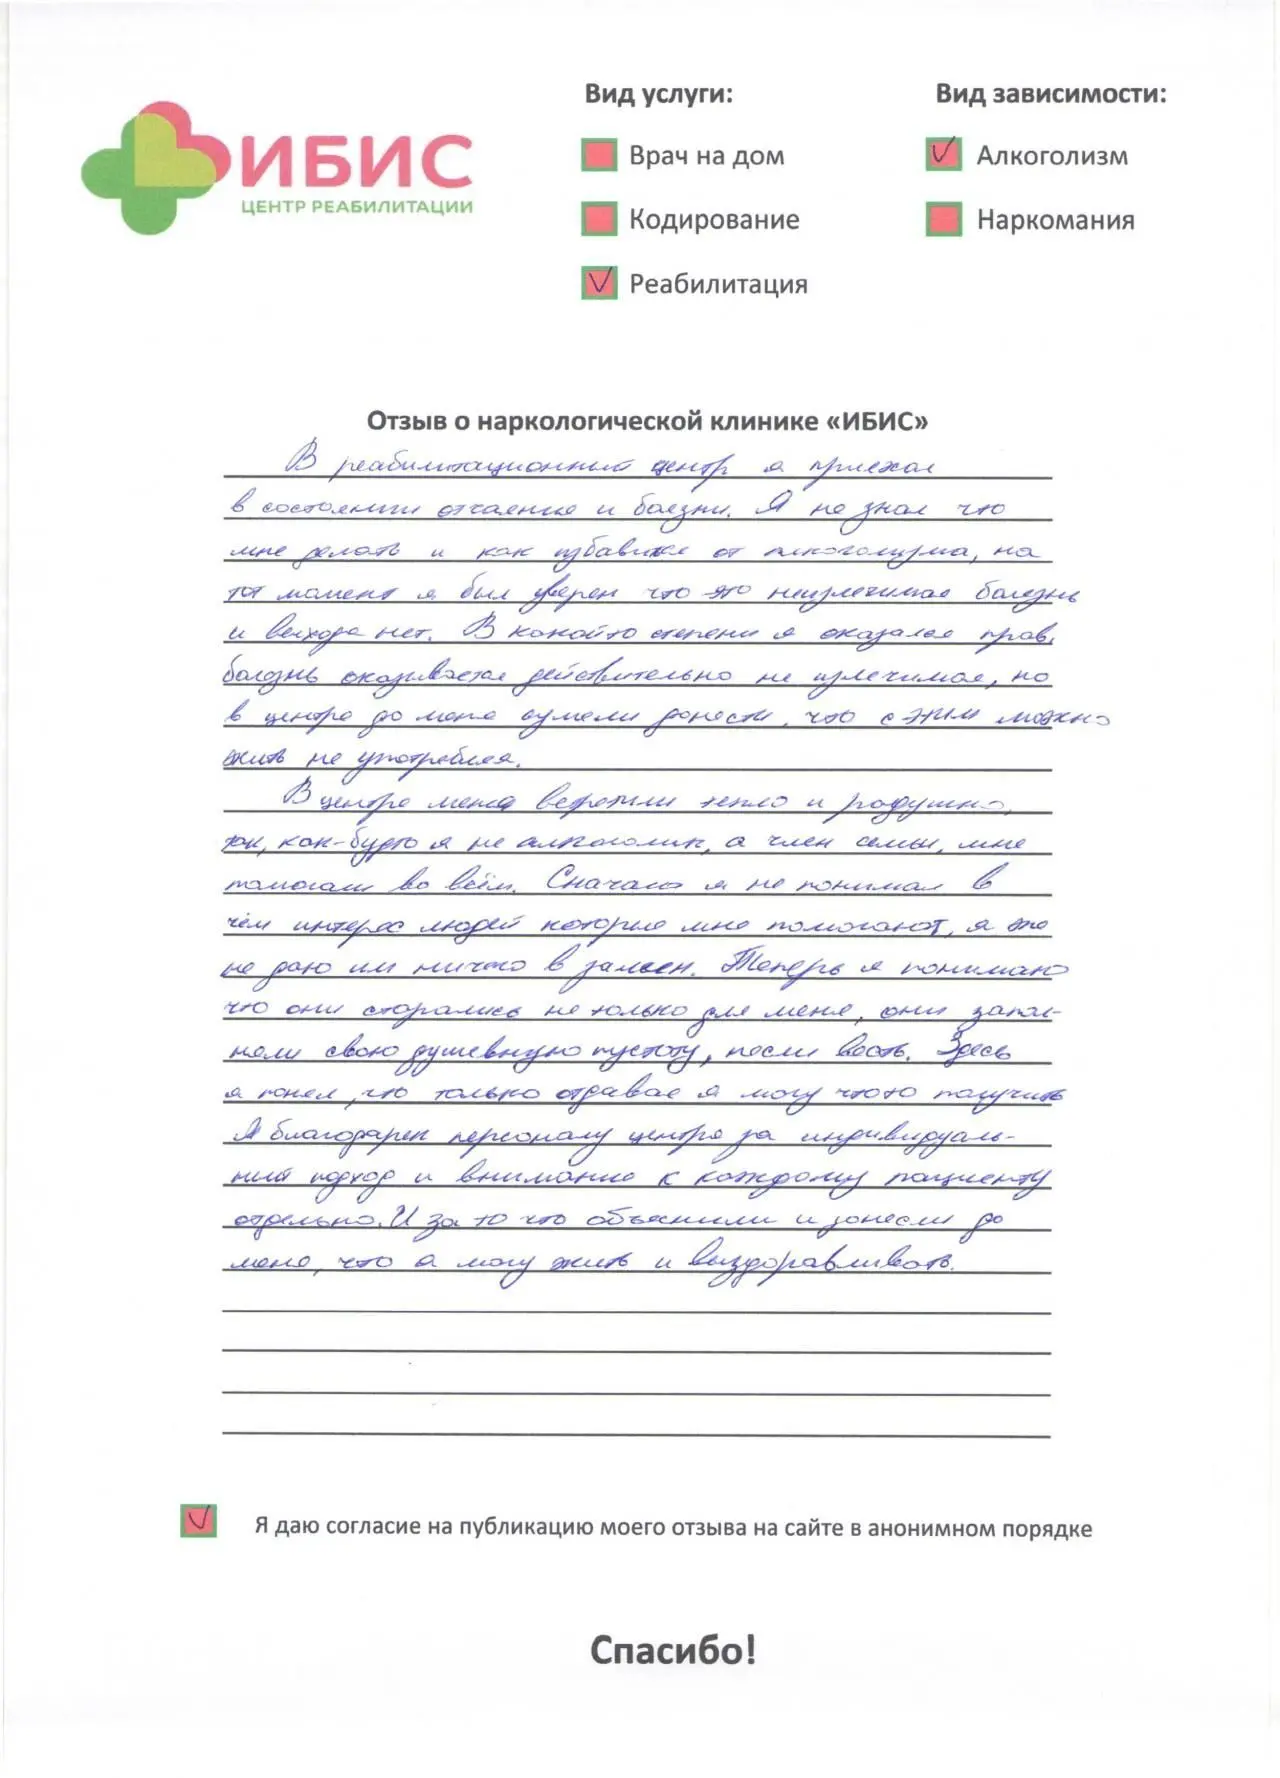 ИБИС
ЦЕНТР РЕАБИЛИТАЦИИ
Вид услуги:
Врач на дом
Кодирование
Реабилитация
Вид зависимости:
Алкоголизм
Наркомания
Отзыв о наркологической клинике «ИБИС»
В реабилитационный центр я приехал
в состоянии отчаяние и болезни. Я не знал что
мне делать и как избавится от алкоголизма, на
тот момент я был уверен что это неизлечимая болезнь
и выхода нет. В какойто степени я оказался прав,
болезнь оказывается действительно не излечимая, но
в центре до меня сумели донести, что с этим можно
жить не употребляя.
В центре меня встретили тепло и радушно,
так, как-будто я не алкоголик, а член семьи, мне
помогали во всём. Сначала я не понимал в
чём интерес людей которые мне помогают, я же
не даю им ничего в замен. Теперь я понимаю
что они старались не только для меня, они запол-
няли свою душевную пустоту, если есть. Здесь
я понял, что только отдавая я могу чтото получить
Я благодарен персоналу центра за индивидуаль-
ный подход и внимание к каждому пациенту
отдельно. И за то что объяснили и донесли до
меня, что я могу жить и выздоравливать.
Я даю согласие на публикацию моего отзыва на сайте в анонимном порядке
Спасибо!